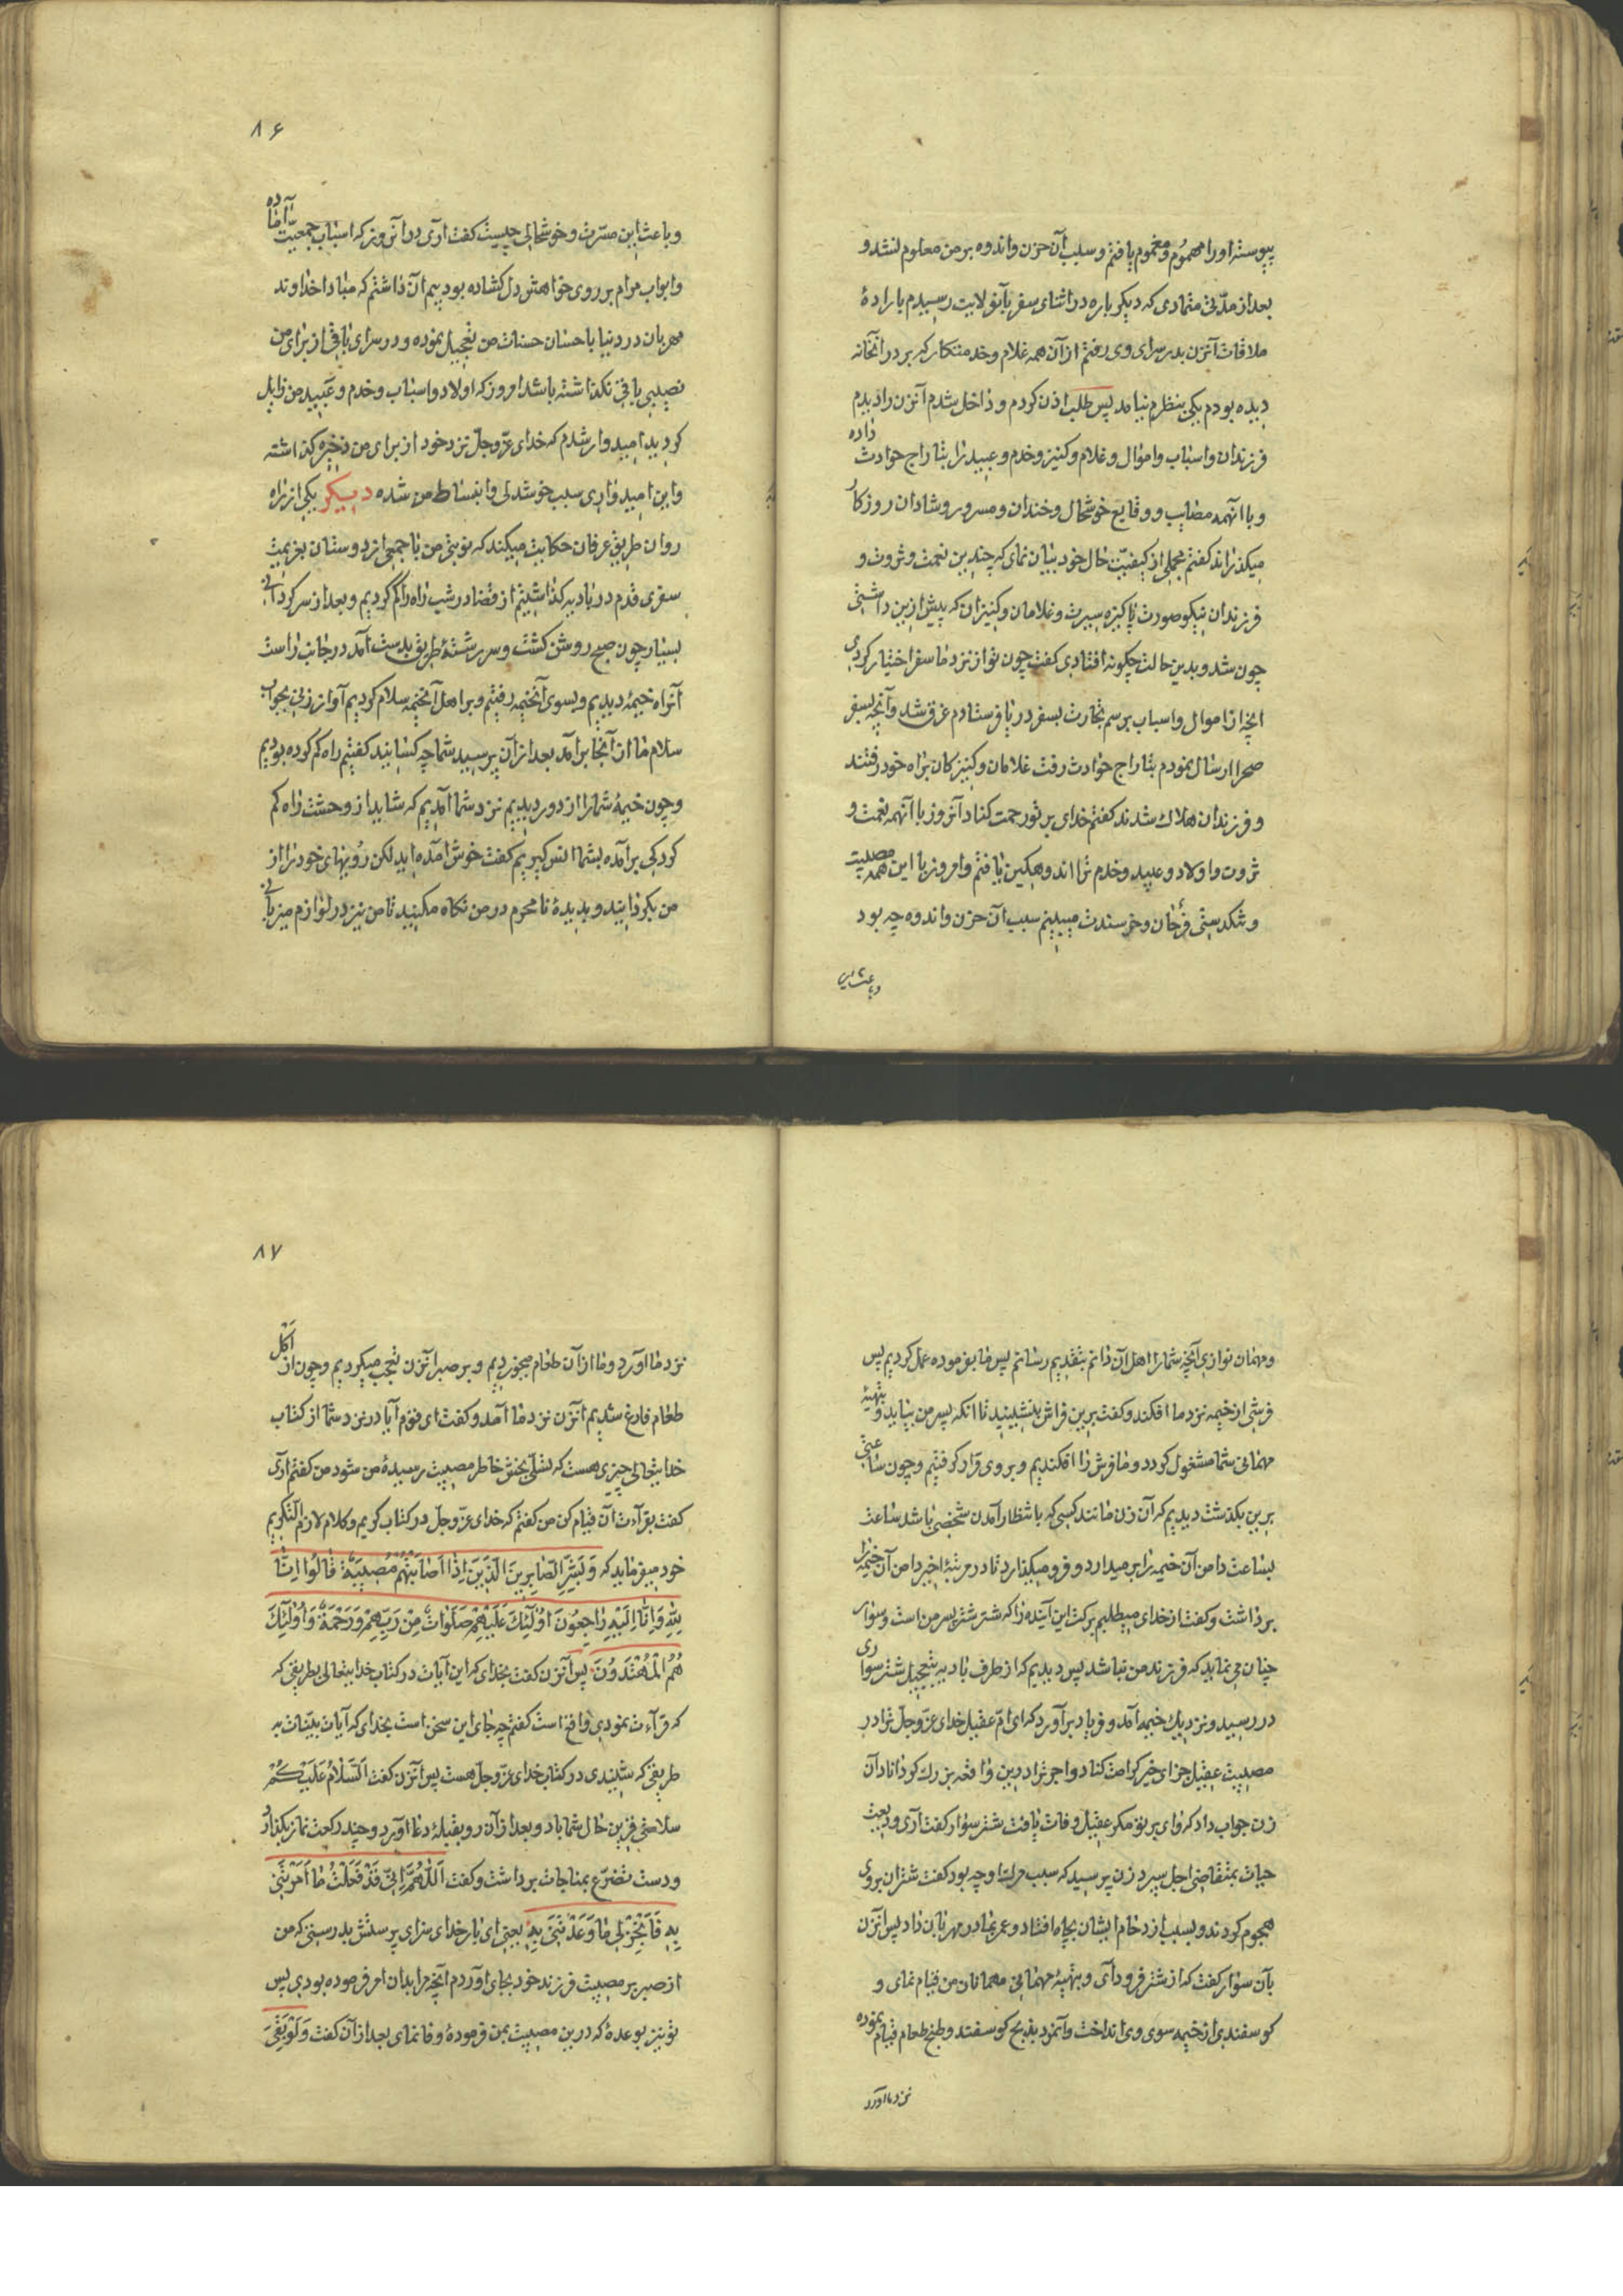 پیوسته او را مهموم و مغموم یافتم و سبب آن حزن و اندوه بر من معلوم نشد و
بعد از مدّتی متمادی که دیگر باره در اثنای سفر بآنولایت رسیدم باراده
ملاقات آنزن بدر سرای وی رفتم از آن همه غلام و خدمتکار که بر در آنخانه
دیده بودم یکی بنظرم نیامد پس طلب اذن کردم و داخل شدم آنزن را دیدم
فرزندان و اسباب و اموال و غلام و کنیز و خدم و عبید را بتاراج حوادث داده
و با آنهمه مصایب و وقایع خوشحال و خندان و مسرور و شادان روزکار
میکذراند کفتم مجملی از کیفیّت حال خود بیان نمای که چندین نعمت و ثروت و
فرزندان نیکو صورت پاکیزه سیرت و غلامان و کنیزان که پیش ازین داشتی
چون شد و بدین حالت چکونه افتادی کفت چون تو از نزد ما سفر اختیار کردی
آنچه از اموال و اسباب برسم تجارت بسفر دریا فرستادم غرق شد و آنچه بسفر
صحرا ارسال نمودم بتاراج حوادث رفت غلامان و کنیزکان براه خود رفتند
و فرزندان هلاک شدند کفتم خدای بر تو رحمت کناد آنروز با آنهمه نعمت و
ثروت و اولاد و عبید و خدم ترا اندوهکین یافتم و امروز با این همه مصیبت
و تنکدستی فرحان و خرسندت میبینم سبب آن حزن و اندوه چه بود
و باعث این
۸۶
و باعث این مسرّت و خوشحالی چیست کفت آری در آنروز که اسباب جمعیّت آماده
و ابواب مرام بر روی خواهش دل کشاده بود بیم آن داشتم که مبادا خداوند
مهربان در دنیا باحسان حسنات من تعجیل نموده و در سرای باقی از برای من
نصیبی باقی نکذاشته باشد امروز که اولاد و اسباب و خدم و عبید من زایل
کردید امیدوار شدم که خدای عزّ و جلّ نزد خود از برای من ذخیره کذاشته
و این امیدواری سبب خوشدلی و انبساط من شده دیکر یکی از راه
روان طریق عرفان حکایت میکند که نوبتی من با جمعی از دوستان بعزیمت
سفری قدم در بادیه کذاشتیم از قضا در شب راه را کم کردیم و بعد از سرکردانی
بسیار چون صبح روشن کشت و سر رشتهٔ طریق بدست آمد در جانب راست
آنراه خیمهٔ دیدیم و بسوی آنخیمه رفتیم و بر اهل آنخیمه سلام کردیم آواز زنی بجواب
سلام ما از آنجا برآمد بعد از آن پرسید شما چه کسانید کفتیم راه کم کرده بودیم
و چون خیمهٔ شما را از دور دیدیم نزد شما آمدیم که شاید از وحشت راه کم
کردکی برآمده بشما انس کیریم کفت خوش آمده اید لکن رویهای خود را از
من بکردانید و بدیدهٔ نامحرم در من نکاه مکنید تا من نیز در لوازم میزبانی
و مهمان نوازی آنچه شما را اهل آن دانم بتقدیم رسانم پس ما بفرموده عمل کردیم پس
فرشی از خیمه نزد ما افکند و کفت برین فراش بنشینید تا آنکه پسر من بیاید و بتهیهٔ
مهمانی شما مشغول کردد و ما فرش را افکندیم و بر وی قرار کرفتیم و چون ساعتی
برین بکذشت دیدیم که آن زن مانند کسی که بانتظار آمدن شخصی باشد ساعت
بساعت دامن آن خیمه را بر میدارد و فرو میکذارد تا در مرتبهٔ اخیر دامن آن خیمه را
برداشت و کفت از خدای میطلبم برکت این آینده را که شتر شتر پسر من است و سوار
چنان می نماید که فرزند من نباشد پس دیدیم که از طرف بادیه بتعجیل شتر سواری
در رسید و نزدیک خیمه آمد و فریاد برآورد که ای امّ عقیل خدای عزّ و جلّ ترا در
مصیبت عقیل جزای خیر کرامت کناد و اجر ترا درین واقعه بزرک کرداناد آن
زن جواب داد که وای بر تو مکر عقیل وفات یافت شتر سوار کفت آری ودیعت
حیات بمتقاضی اجل سپرد زن پرسید که سبب مرک او چه بود کفت شتران بر وی
هجوم کردند و بسبب ازدحام ایشان بچاه افتاد و عمر بمادر مهربان داد پس آنزن
بآن سوار کفت که از شتر فرود آی و بتهیهٔ مهمانی مهمانان من قیام نمای و
کوسفندی از خیمه سوی وی انداخت و آنمرد بذبح کوسفند و طبخ طعام قیام نموده
نزد ما آورد
۸۷
نزد ما آورد و ما از آن طعام میخوردیم و بر صبر آنزن تعجب میکردیم و چون از اکل
طعام فارغ شدیم آنزن نزد ما آمد و کفت ای قوم آیا در نزد شما از کتاب
خدایتعالی چیزی هست که تسلّی بخش خاطر مصیبت رسیدهٔ من شود من کفتم آری
کفت بقراءت آن قیام کن من کفتم که خدای عزّ و جلّ در کتاب کریم و کلام لازم التکریم
خود میفرماید که وَبَشِّرِ الصَّابِرِینَ الَّذِینَ اِذَا اَصَابَتْهُمْ مُصِیبَةٌ قَالُوا اِنَّا
لِلّهِ وَاِنَّا اِلَیْهِ رَاجِعُونَ اُولٰئِكَ عَلَیْهِمْ صَلَوَاتٌ مِنْ رَبِّهِمْ وَرَحْمَةٌ وَاُولٰئِكَ
هُمُ الْمُهْتَدُونَ پس آنزن کفت بخدای که این آیات در کتاب خدایتعالی بطریقی که
که قراءت نمودی واقع است کفتم چه جای این سخن است بخدای که آیات بیّنات به
طریقی که شنیدی در کتاب خدای عزّ و جلّ هست پس آنزن کفت اَلسَّلَامُ عَلَیْکُمْ
سلامتی قرین حال شما باد و بعد از آن رو بقبلهٔ دعا آورد و چند رکعت نماز بکذارد
و دست تضرّع بمناجات برداشت و کفت اَللّٰهُمَّ اِنِّی قَدْ فَعَلْتُ مَا اَمَرْتَنِی
بِهِ فَاَنْجِزْ لِی مَا وَعَدْتَنِی بِهِ یعنی ای بار خدای سزای پرستش بدرستی که من
از صبر بر مصیبت فرزند خود بجای آوردم آنچه مرا بدان امر فرموده بودی پس
تو نیز بوعدهٔ که درین مصیبت بمن فرمودهٔ وفا نمای بعد از آن کفت وَلَوْ بَقِیَ